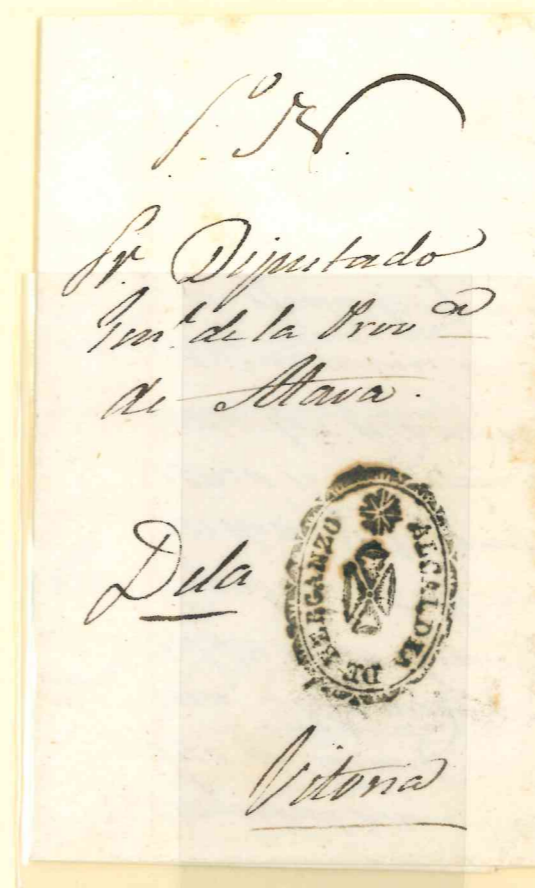 S.º N.
Sr. Diputado
Gen.l de la Prov.ª
de Alava.
De la
ALCALDIA DE BERGANZO
Vitoria